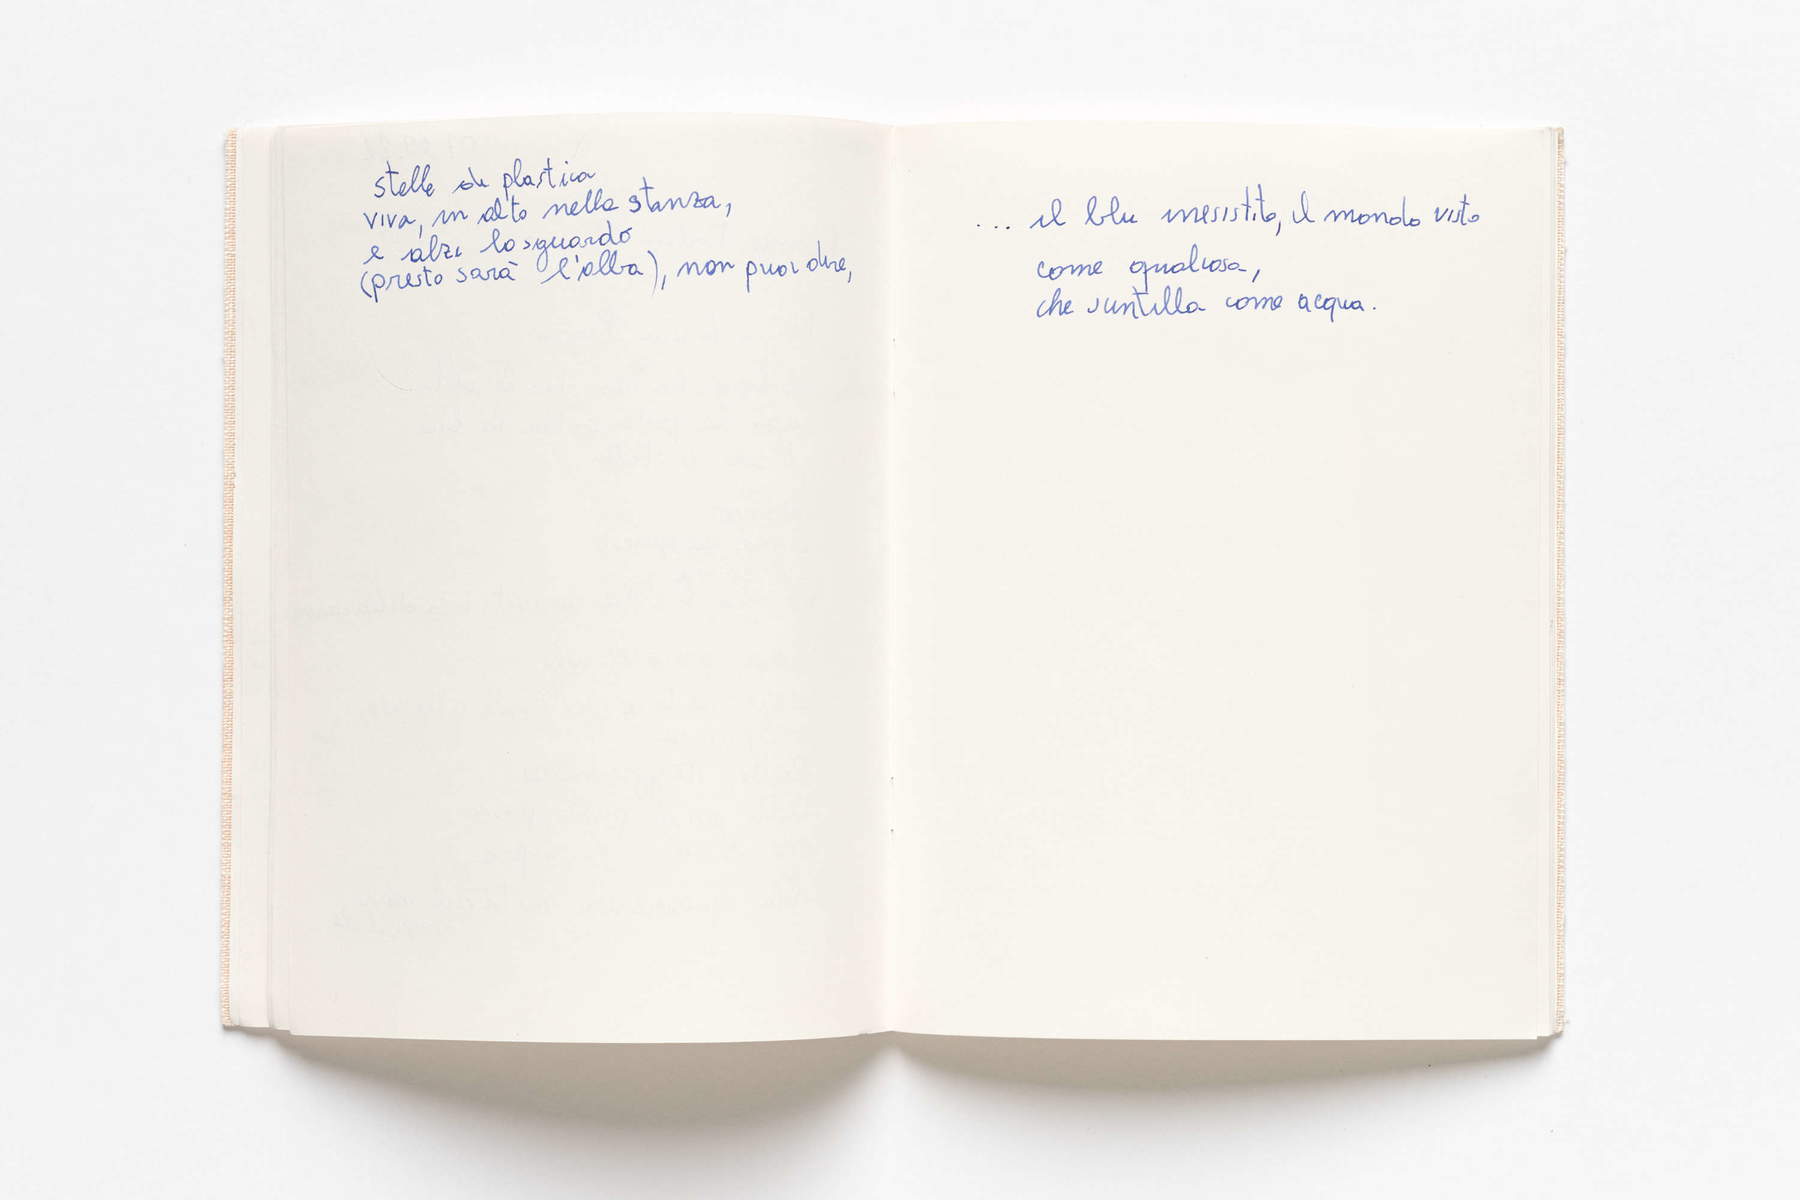 stelle di plastica
viva, in alto nella stanza,
e alzi lo sguardo
(presto sarà l'alba), non puoi dire,
... il blu inesistito, il mondo visto
come qualcosa,
che scintilla come acqua.